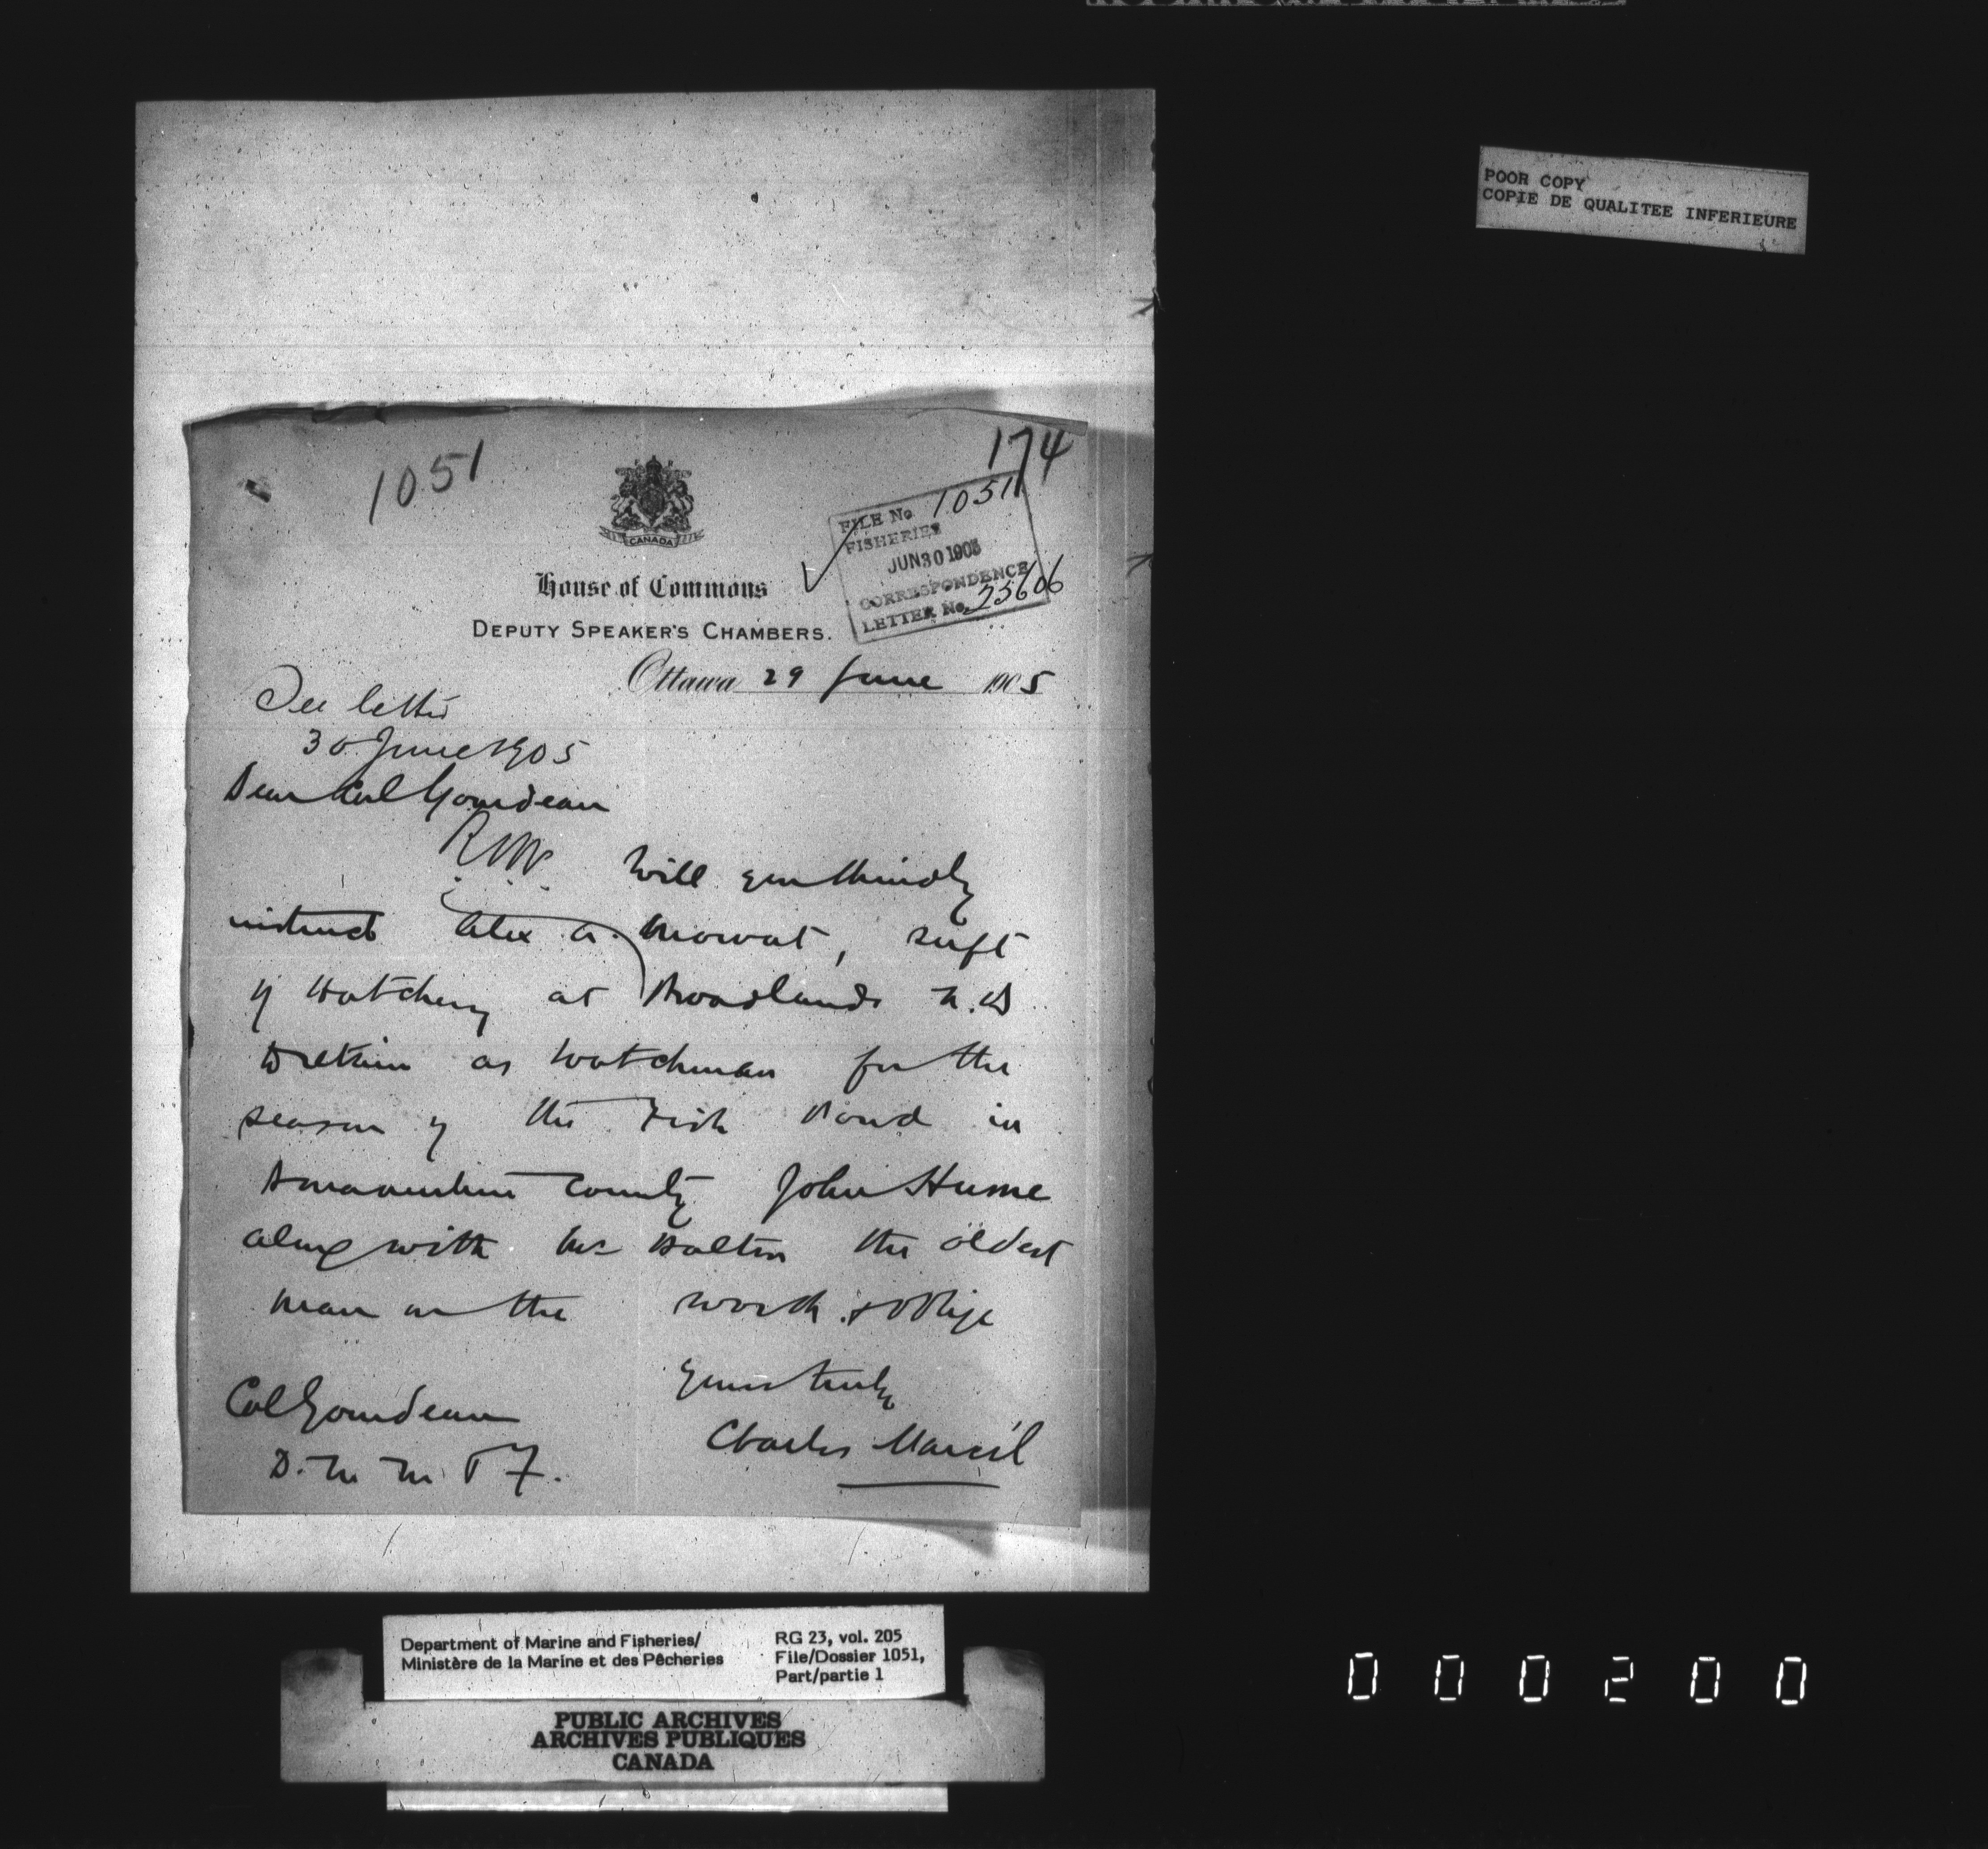 POOR COPY
COPIE DE QUALITEE INFERIEURE
174
1051
CANADA
FILE No 1051
FISHERIES
JUN 30 1905
CORRESPONDENCE
LETTER No. 23606
House of Commons
DEPUTY SPEAKER'S CHAMBERS.
Ottawa 29 June 1905
See letter
30 June 1905
Dear Col Gourdeau
Will you kindly
instruct Alex A. Mowat, supt
of Hatchery at Broadlands
to retain as watchman for the
season of the Fish Pond in
Bonaventure County John Hume
along with Mr the oldest
man on the work & oblige
Yours truly
Charles Marcil
Col Gourdeau
D. M. M. & F.
Department of Marine and Fisheries/
Ministère de la Marine et des Pêcheries
RG 23, vol. 205
File/Dossier 1051,
Part/partie 1
PUBLIC ARCHIVES
ARCHIVES PUBLIQUES
CANADA
000200